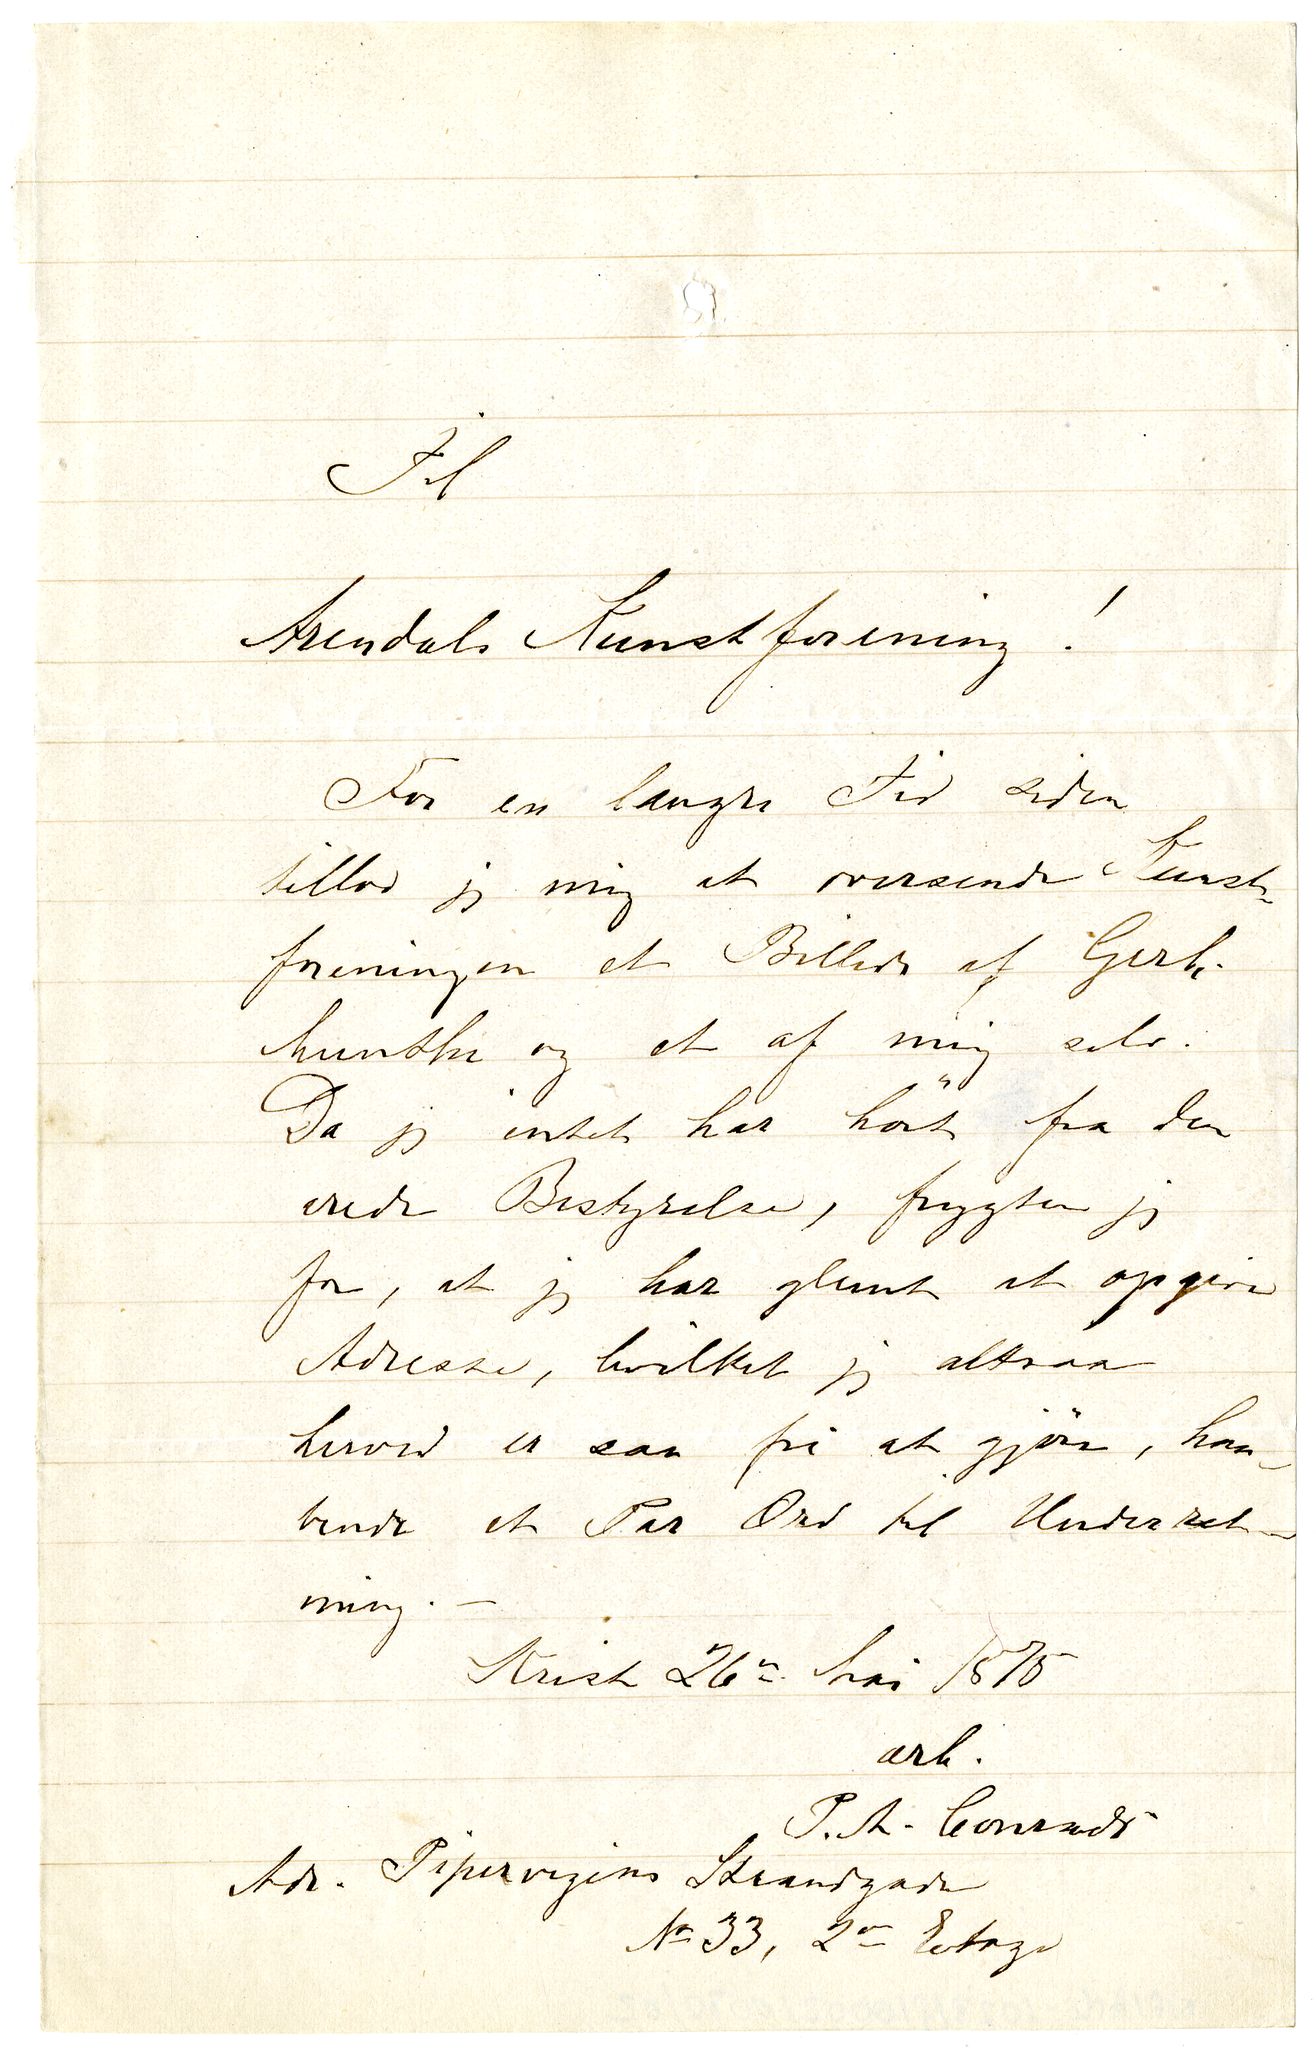 Til
Arendals Kunstforening!
For en længre Tid siden
tillod jeg mig at oversende Kunst-
foreningen et Billede af Gerh.
Munthe og et af mig selv.
Da jeg intet har hört fra den
ærede Bestyrelse, frygter jeg
for, at jeg har glemt at opgive
Adresse, hvilket jeg altsaa
herved er saa fri at gjöre, haa-
bende et Par Ord til Underret-
ning. —
Krist 26de Mai 1875
ærb.
P. A. Conradi
Adr. Pipervigens Strandgade
No 33, 2den Etage